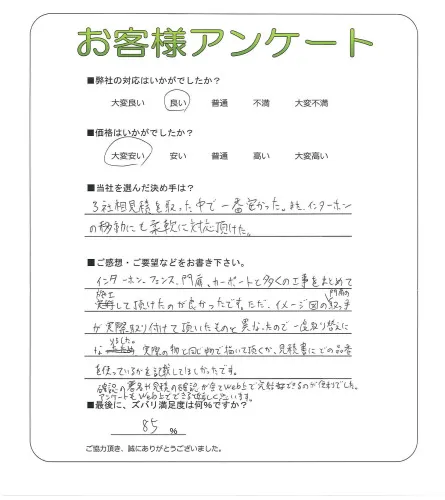 お客様アンケート
■弊社の対応はいかがでしたか？
大変良い 良い 普通 不満 大変不満
■価格はいかがでしたか？
大変安い 安い 普通 高い 大変高い
■当社を選んだ決め手は？
3社相見積を取った中で一番安かった。また、インターホン
の移動にも柔軟に対応頂けた。
■ご感想・ご要望などをお書き下さい。
インターホン、フェンス、門扉、カーポートと多くの工事をまとめて
施工して頂けたのが良かったです。ただ、イメージ図の門扉の取っ手
が実際取り付けて頂いたものと異なったので一度取り替えに
なりました。実際の物と同じ物で描いて頂くか、見積書にどの品番
を使っているかを記載してほしかったです。
確認の署名や見積の確認が全てWeb上で完結できるのが便利でした。
アンケートもWeb上でできると嬉しく思います。
■最後に、ズバリ満足度は何％ですか？
85 %
ご協力頂き、誠にありがとうございました。